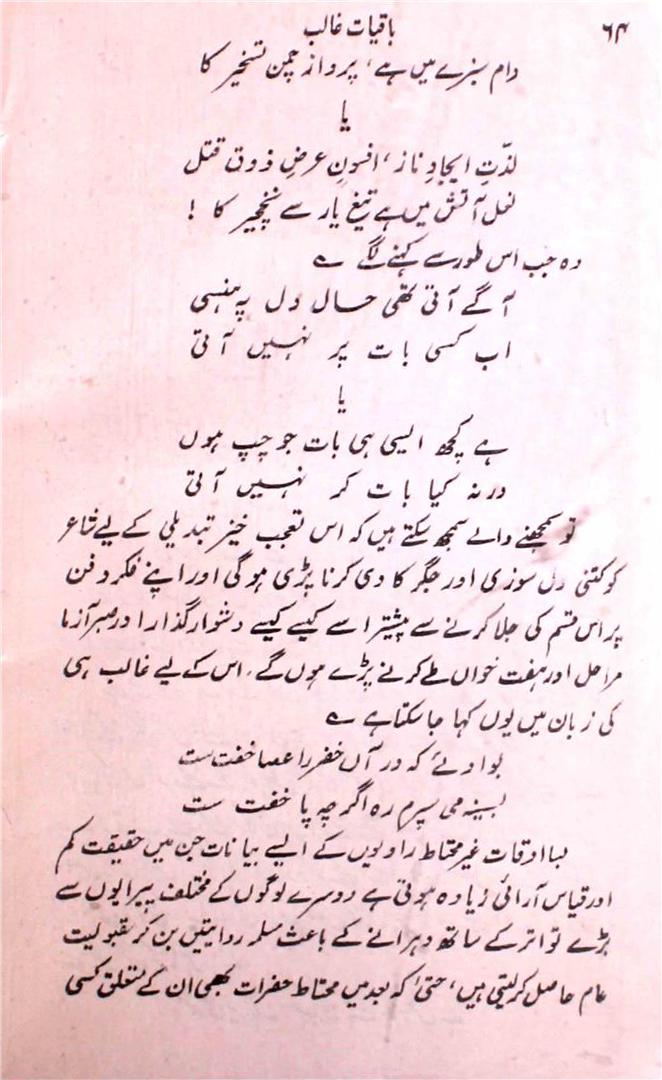 ۶۴ باقیات غالب
دام سبزے میں ہے، پرواز چمن تسخیر کا
یا
لذّتِ ایجادِ ناز، افسونِ عرضِ ذوق قتل
نعل آتش میں ہے تیغِ یار سے نخچیر کا!
وہ جب اس طور سے کہنے لگے ؎
آگے آتی تھی حال دل پہ ہنسی
اب کسی بات پر نہیں آتی
یا
ہے کچھ ایسی ہی بات جو چپ ہوں
ورنہ کیا بات کر نہیں آتی
تو سمجھنے والے سمجھ سکتے ہیں کہ اس تعجب خیز تبدیلی کے لیے شاعر
کو کتنی دل سوزی اور جگر کا دی کرنا پڑی ہوگی اور اپنے فکر و فن
پر اس قسم کی جلا کرنے سے پیشتر اسے کیسے کیسے دشوار گذار اور صبر آزما
مراحل اور ہفت خواں طے کرنے پڑے ہوں گے، اس کے لیے غالب ہی
کی زبان میں یوں کہا جا سکتا ہے ؎
بوادئے کہ در آں خضر را عصا خفت ست
بسینہ می سپرم رہ اگرچہ پا خفت ست
بسا اوقات غیر محتاط راویوں کے ایسے بیانات جن میں حقیقت کم
اور قیاس آرائی زیادہ ہوتی ہے دوسرے لوگوں کے مختلف پیرایوں سے
بڑے تواتر کے ساتھ دہرانے کے باعث مسلمہ روایتیں بن کر مقبولیت
عام حاصل کر لیتی ہیں، حتیٰ کہ بعد میں محتاط حضرات بھی ان کے متعلق کسی